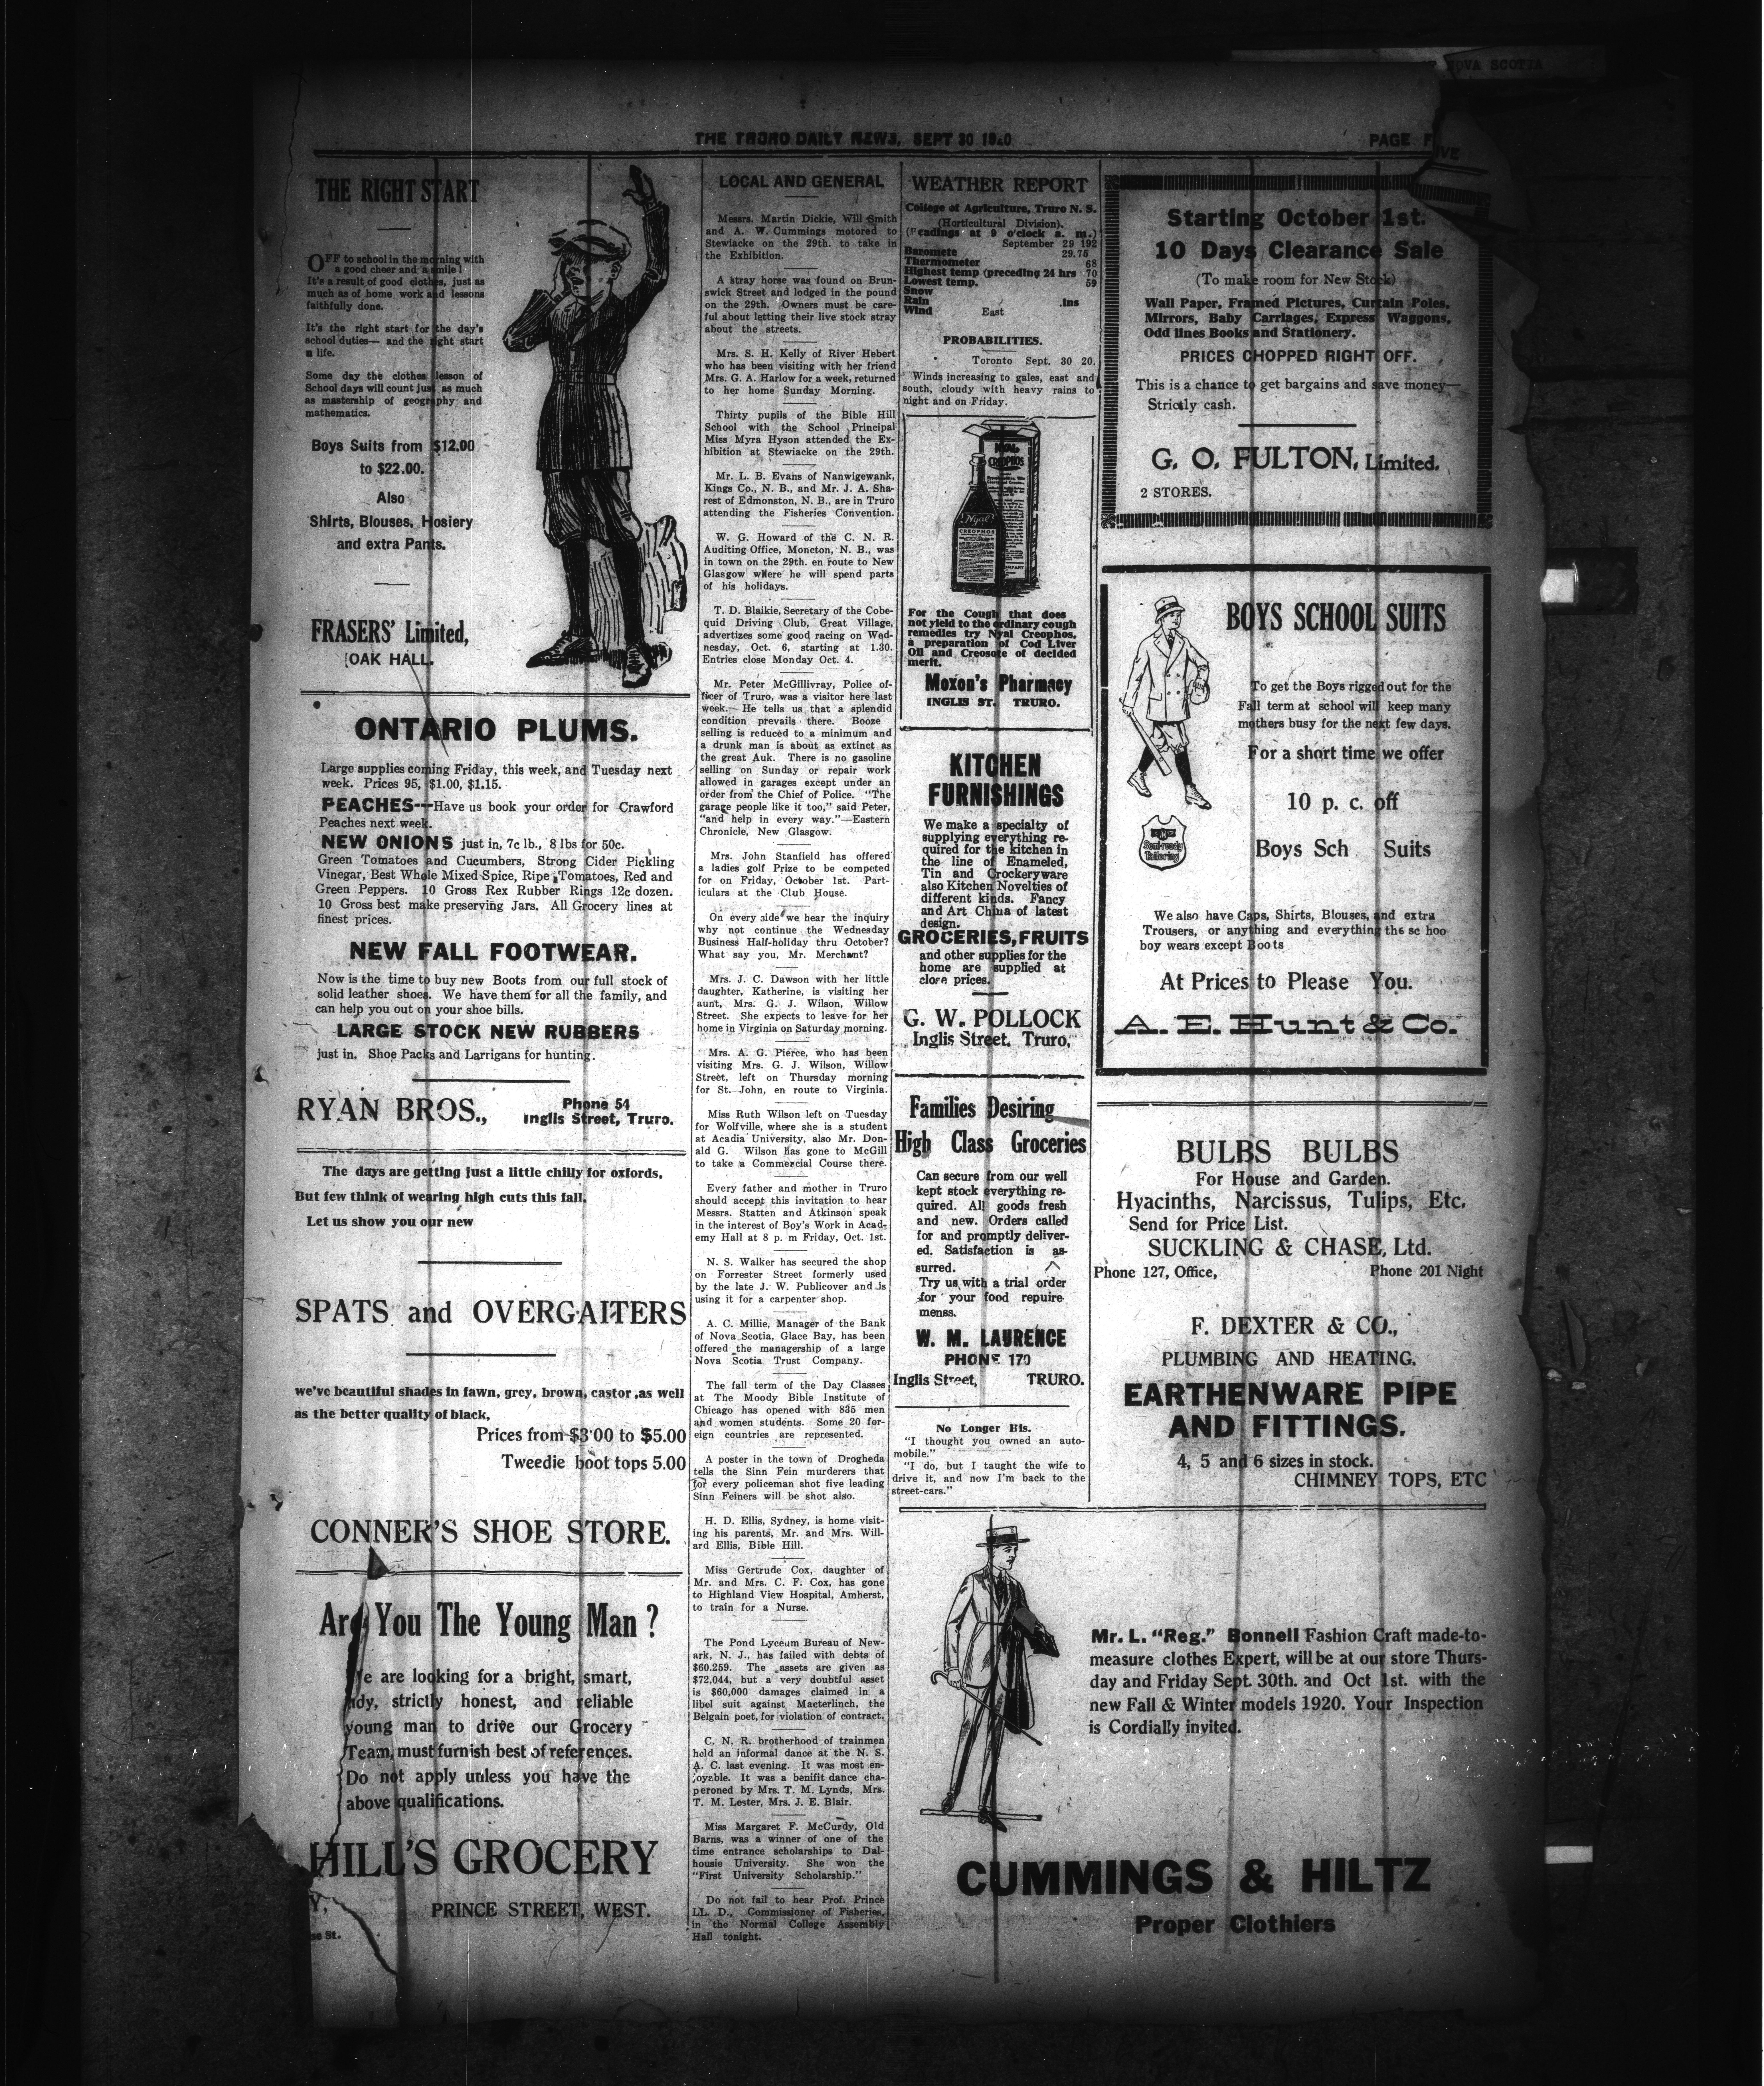 NOVA SCOTIA
THE TRURO DAILY NEWS, SEPT 30 1920
PAGE FIVE
THE RIGHT START
OFF to school in the morning with
a good cheer and a smile!
It's a result of good clothes, just as
much as of home work and lessons
faithfully done.
It's the right start for the day's
school duties— and the right start
a life.
Some day the clothes lesson of
School days will count just as much
as mastership of geography and
mathematics.
Boys Suits from $12.00
to $22.00.
Also
Shirts, Blouses, Hosiery
and extra Pants.
FRASERS' Limited,
OAK HALL.
ONTARIO PLUMS.
Large supplies coming Friday, this week, and Tuesday next
week. Prices 95, $1.00, $1.15.
PEACHES--Have us book your order for Crawford
Peaches next week.
NEW ONIONS just in, 7c lb., 8 lbs for 50c.
Green Tomatoes and Cucumbers, Strong Cider Pickling
Vinegar, Best Whole Mixed Spice, Ripe Tomatoes, Red and
Green Peppers. 10 Gross Rex Rubber Rings 12c dozen.
10 Gross best make preserving Jars. All Grocery lines at
finest prices.
NEW FALL FOOTWEAR.
Now is the time to buy new Boots from our full stock of
solid leather shoes. We have them for all the family, and
can help you out on your shoe bills.
LARGE STOCK NEW RUBBERS
just in. Shoe Packs and Larrigans for hunting.
RYAN BROS.,
Phone 54
Inglis Street, Truro.
The days are getting just a little chilly for oxfords,
But few think of wearing high cuts this fall.
Let us show you our new
SPATS and OVERGAITERS
we've beautiful shades in fawn, grey, brown, castor ,as well
as the better quality of black,
Prices from $3.00 to $5.00
Tweedie boot tops 5.00
CONNER'S SHOE STORE.
Are You The Young Man ?
We are looking for a bright, smart,
tidy, strictly honest, and reliable
young man to drive our Grocery
Team, must furnish best of references.
Do not apply unless you have the
above qualifications.
HILL'S GROCERY
PRINCE STREET, WEST.
Y,
se St.
LOCAL AND GENERAL
Messrs. Martin Dickie, Will Smith
and A. W. Cummings motored to
Stewiacke on the 29th. to take in
the Exhibition.
A stray horse was found on Brun-
swick Street and lodged in the pound
on the 29th. Owners must be care-
ful about letting their live stock stray
about the streets.
Mrs. S. H. Kelly of River Hebert
who has been visiting with her friend
Mrs. G. A. Harlow for a week, returned
to her home Sunday Morning.
Thirty pupils of the Bible Hill
School with the School Principal
Miss Myra Hyson attended the Ex-
hibition at Stewiacke on the 29th.
Mr. L. B. Evans of Nanwigewank,
Kings Co., N. B., and Mr. J. A. Sha-
rest of Edmonston, N. B., are in Truro
attending the Fisheries Convention.
W. G. Howard of the C. N. R.
Auditing Office, Moncton, N. B., was
in town on the 29th. en route to New
Glasgow where he will spend parts
of his holidays.
T. D. Blaikie, Secretary of the Cobe-
quid Driving Club, Great Village,
advertizes some good racing on Wed-
nesday, Oct. 6, starting at 1.30.
Entries close Monday Oct. 4.
Mr. Peter McGillivray, Police of-
ficer of Truro, was a visitor here last
week.— He tells us that a splendid
condition prevails there. Booze
selling is reduced to a minimum and
a drunk man is about as extinct as
the great Auk. There is no gasoline
selling on Sunday or repair work
allowed in garages except under an
order from the Chief of Police. "The
garage people like it too," said Peter,
"and help in every way."—Eastern
Chronicle, New Glasgow.
Mrs. John Stanfield has offered
a ladies golf Prize to be competed
for on Friday, October 1st. Part-
iculars at the Club House.
On every side we hear the inquiry
why not continue the Wednesday
Business Half-holiday thru October?
What say you, Mr. Merchant?
Mrs. J. C. Dawson with her little
daughter, Katherine, is visiting her
aunt, Mrs. G. J. Wilson, Willow
Street. She expects to leave for her
home in Virginia on Saturday morning.
Mrs. A. G. Pierce, who has been
visiting Mrs. G. J. Wilson, Willow
Street, left on Thursday morning
for St. John, en route to Virginia.
Miss Ruth Wilson left on Tuesday
for Wolfville, where she is a student
at Acadia University, also Mr. Don-
ald G. Wilson has gone to McGill
to take a Commercial Course there.
Every father and mother in Truro
should accept this invitation to hear
Messrs. Statten and Atkinson speak
in the interest of Boy's Work in Acad-
emy Hall at 8 p. m Friday, Oct. 1st.
N. S. Walker has secured the shop
on Forrester Street formerly used
by the late J. W. Publicover and is
using it for a carpenter shop.
A. C. Millie, Manager of the Bank
of Nova Scotia, Glace Bay, has been
offered the managership of a large
Nova Scotia Trust Company.
The fall term of the Day Classes
at The Moody Bible Institute of
Chicago has opened with 835 men
and women students. Some 20 for-
eign countries are represented.
A poster in the town of Drogheda
tells the Sinn Fein murderers that
for every policeman shot five leading
Sinn Feiners will be shot also.
H. D. Ellis, Sydney, is home visit-
ing his parents, Mr. and Mrs. Will-
ard Ellis, Bible Hill.
Miss Gertrude Cox, daughter of
Mr. and Mrs. C. F. Cox, has gone
to Highland View Hospital, Amherst,
to train for a Nurse.
The Pond Lyceum Bureau of New-
ark, N. J., has failed with debts of
$60.259. The assets are given as
$72,044, but a very doubtful asset
is $60,000 damages claimed in a
libel suit against Macterlinch, the
Belgain poet, for violation of contract.
C. N. R. brotherhood of trainmen
held an informal dance at the N. S.
A. C. last evening. It was most en-
joyable. It was a benifit dance cha-
peroned by Mrs. T. M. Lynds, Mrs.
T. M. Lester, Mrs. J. E. Blair.
Miss Margaret F. McCurdy, Old
Barns, was a winner of one of the
time entrance scholarships to Dal-
housie University. She won the
"First University Scholarship."
Do not fail to hear Prof. Prince
LL. D., Commissioner of Fisheries,
in the Normal College Assembly
Hall tonight.
WEATHER REPORT
College of Agriculture, Truro N. S.
(Horticultural Division).
(Readings at 9 o'clock a. m.)
September 29 192
Baromete 29.75
Thermometer 68
Highest temp (preceding 24 hrs 70
Lowest temp. 59
Snow
Rain .ins
Wind East
PROBABILITIES.
Toronto Sept. 30 20.
Winds increasing to gales, east and
south, cloudy with heavy rains to
night and on Friday.
NYAL
CREOPHOS
Nyal
CREOPHOS
For the Cough that does
not yield to the ordinary cough
remedies try Nyal Creophos,
a preparation of Cod Liver
Oil and Creosote of decided
merit.
Moxon's Pharmacy
INGLIS ST. TRURO.
KITCHEN
FURNISHINGS
We make a specialty of
supplying everything re-
quired for the kitchen in
the line of Enameled,
Tin and Crockeryware
also Kitchen Novelties of
different kinds. Fancy
and Art China of latest
design.
GROCERIES,FRUITS
and other supplies for the
home are supplied at
close prices.
G. W. POLLOCK
Inglis Street. Truro,
Families Desiring
High Class Groceries
Can secure from our well
kept stock everything re-
quired. All goods fresh
and new. Orders called
for and promptly deliver-
ed. Satisfaction is as-
surred.
Try us with a trial order
for your food repuire
menss.
W. M. LAURENCE
PHONE 170
Inglis Street, TRURO.
No Longer His.
"I thought you owned an auto-
mobile."
"I do, but I taught the wife to
drive it, and now I'm back to the
street-cars."
Starting October 1st.
10 Days Clearance Sale
(To make room for New Stock)
Wall Paper, Framed Pictures, Curtain Poles,
Mirrors, Baby Carriages, Express Waggons,
Odd lines Books and Stationery.
PRICES CHOPPED RIGHT OFF.
This is a chance to get bargains and save money—
Strictly cash.
G. O. FULTON, Limited.
2 STORES.
BOYS SCHOOL SUITS
To get the Boys rigged out for the
Fall term at school will keep many
mothers busy for the next few days.
For a short time we offer
10 p. c. off
Boys Sch Suits
Semi-ready
Tailoring
We also have Caps, Shirts, Blouses, and extra
Trousers, or anything and everything the sc hoo
boy wears except Boots
At Prices to Please You.
A. E. Hunt & Co.
BULBS BULBS
For House and Garden.
Hyacinths, Narcissus, Tulips, Etc.
Send for Price List.
SUCKLING & CHASE, Ltd.
Phone 127, Office, Phone 201 Night
F. DEXTER & CO.,
PLUMBING AND HEATING.
EARTHENWARE PIPE
AND FITTINGS.
4, 5 and 6 sizes in stock.
CHIMNEY TOPS, ETC
Mr. L. "Reg." Bonnell Fashion Craft made-to-
measure clothes Expert, will be at our store Thurs-
day and Friday Sept. 30th. and Oct 1st. with the
new Fall & Winter models 1920. Your Inspection
is Cordially invited.
CUMMINGS & HILTZ
Proper Clothiers